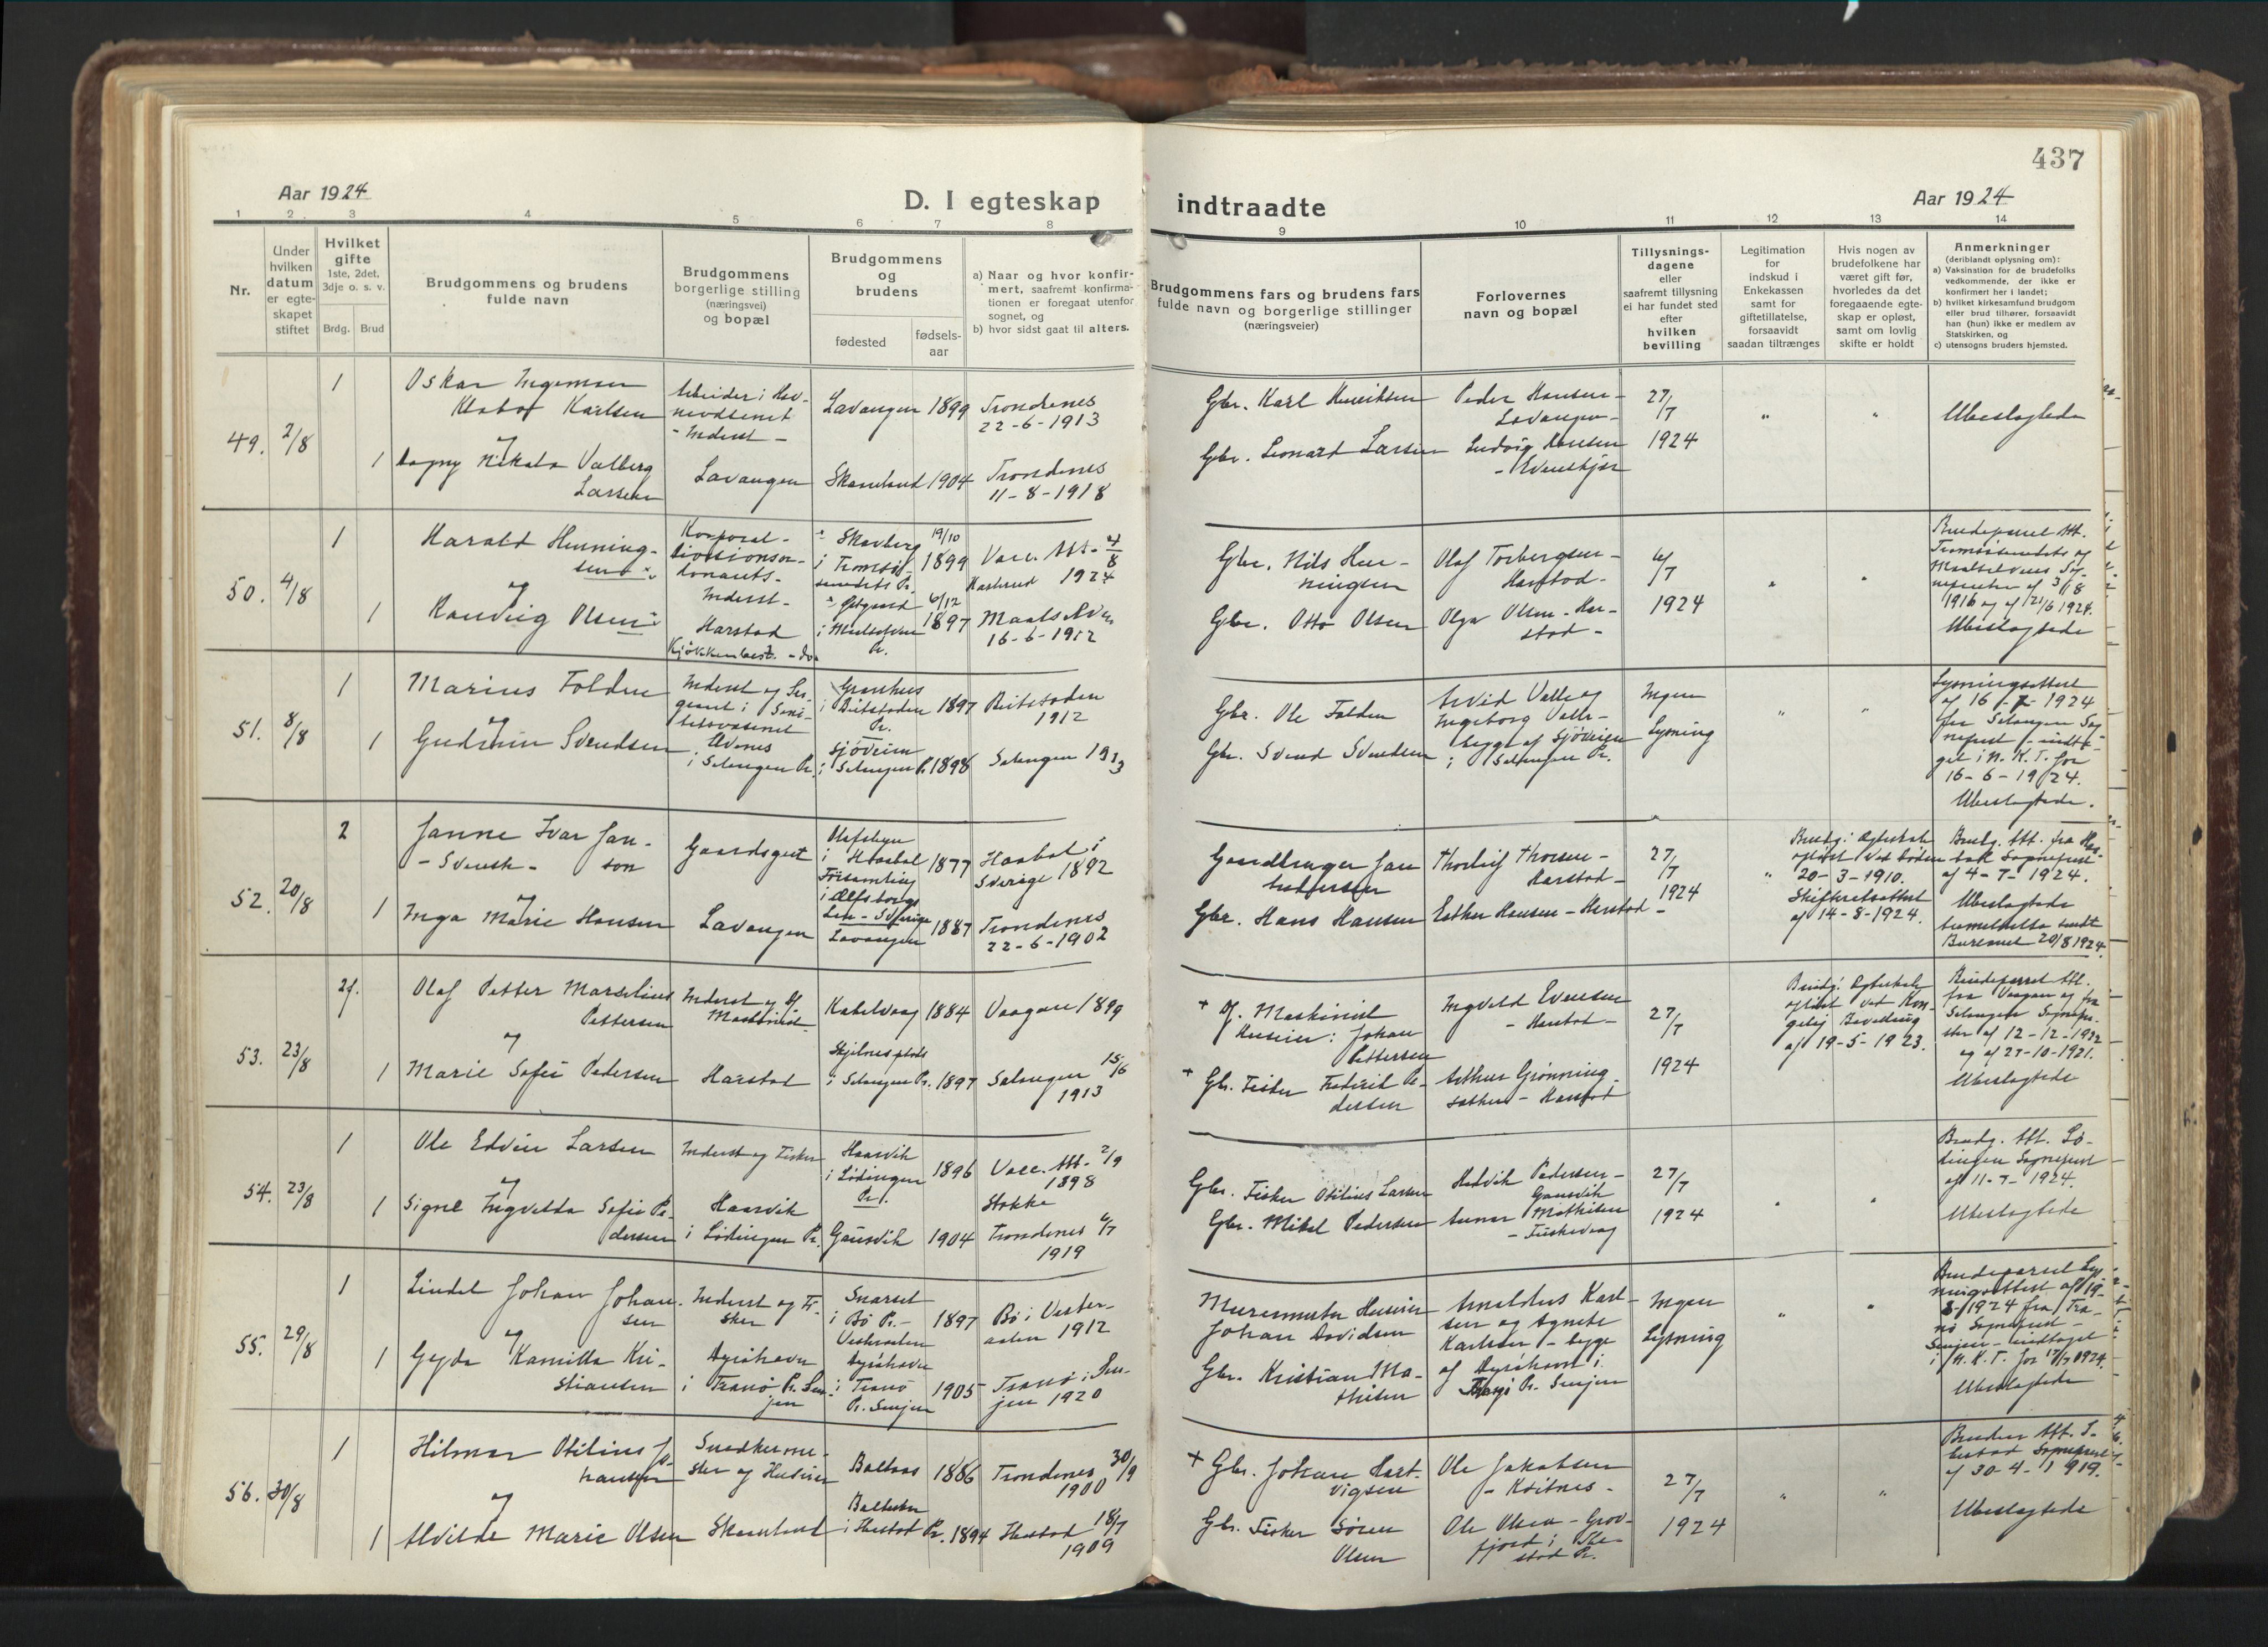 437
Aar 1924
D. I egteskap
indtraadte
Aar 1924
1 2 3 4 5 6 7 8 9 10 11 12 13 14
Nr.
Under
hvilken
datum
er egte-
skapet
stiftet
Hvilket
gifte
1ste, 2det,
3dje o. s. v.
Brdg. Brud
Brudgommens og brudens
fulde navn
Brudgommens
borgerlige stilling
(næringsvei)
og bopæl
Brudgommens
og
brudens
fødested
fødsels-
aar
a) Naar og hvor konfir-
mert, saafremt konfirma-
tionen er foregaat utenfor
sognet, og
b) hvor sidst gaat til alters.
Brudgommens fars og brudens fars
fulde navn og borgerlige stillinger
(næringsveier)
Forlovernes
navn og bopæl
Tillysnings-
dagene
eller
saafremt tillysning
ei har fundet sted
efter
hvilken
bevilling
Legitimation
for
indskud i
Enkekassen
samt for
giftetillatelse,
forsaavidt
saadan tiltrænges
Hvis nogen av
brudefolkene har
været gift før,
hvorledes da det
foregaaende egte-
skap er opløst,
samt om lovlig
skifte er holdt
Anmerkninger
(deriblandt oplysning om):
a) Vaksination for de brudefolks
vedkommende, der ikke er
konfirmert her i landet;
b) hvilket kirkesamfund brudgom
eller brud tilhører, forsaavidt
han (hun) ikke er medlem av
Statskirken, og
c) utensogns bruders hjemsted.
49. 2/8
1
Oskar Ingemann
Karlsen
og
1
Dagny Nikala Valberg
Larsen
Arbeider i Hav-
nevæsenet
- Inderst -
Lavangen
Lavangen 1899
Skaanland 1904
Trondenes
22-6-1913
Trondenes
11-8-1918
Gbr. Karl Henriksen
Gbr. Leonard Larsen
Peder Hansen -
Lavangen -
Ludvig Hansen
- Evenskjær
27/7
1924
" "
Ubeslægtede
50. 4/8
1
Harald Henning-
sen
og
1
Ranveig Olsen
Korporal -
Inderst -
Harstad
Skavberg 19/10
i Tromsø- 1899
sundets Pr.
6/12
i Maalselven 1897
Pr.
Vacc. Att. 4/8
1924
Maalselven
16-6-1912
Gbr. Nils Hen-
ningsen
Gbr. Otto Olsen
Olaf Torbergsen -
Harstad -
Olga Olsen - Har-
stad -
6/7
1924
" "
Brudeparret Att.
Tromsøsundets og
Maalselvens Sog-
neprester af 3/8
1916 og af 21/6 1924.
Ubeslægtede
51. 8/8
1
Marius Folden
og
1
Gudrun Svendsen
Inderst og Ser-
geant i Sani-
tetsvæsenet
i Salangen Pr.
i Beitstaden 1897
Pr.
Sjøveien
i Salangen Pr. 1898
Beitstaden
1912
Salangen 1913
Gbr. Ole Folden
Gbr. Svend Svendsen
Arvid Valle og
Ingeborg Valle -
begge af Sjøveien
i Salangen Pr.
Ingen
Lysning
" "
Lysningsattest
af 16-7-1924
fra Salangen Sog-
neprest - indta-
get i N. K. T. for
16-6-1924.
Ubeslægtede.
52. 20/8
2
Janne Ivar Jan-
- Svensk - son
og
1
Inga Marie Hansen
Gaardsgut
Lavangen
i Haabol 1877
Forsamling
i Elfsborgs
Len - Sverige
Lavangen 1887
Haabol i
Sverige 1892
Trondenes
22-6-1902
Gaardbruger Jan
Andersson
Gbr. Hans Hansen
Thorleif Thorsen -
Harstad -
Esther Hansen - Harstad -
27/7
1924
"
Brudg: Ægteskab
opløst ved Døden
20-3-1910.
Skifteretsattest
af 14-8-1924.
Brudg. Att. fra
Sogneprest
af 4-7-1924.
Ubeslægtede
Anmeldelse sendt
20/8 1924.
53. 23/8
2f.
Olaf Petter Marselius
Pettersen
og
1
Marie Sofie Pedersen
Inderst og
Maskinist
Harstad
Kabelvaag 1884
i Salangen Pr. 1897
Vaagan 1899
Salangen 15/6
1913
+ Maskinist
Huseier: Johan
Pettersen
+ Gbr. Fisker Fredrik Pe-
dersen
Ingvald Evensen
- Harstad -
Arthur Grønning-
sæther - Harstad
27/7
1924
Brudg: Ægteskab
opløst ved Kon-
gelig Bevilling
af 19-5-1923.
Brudeparret Att.
fra Vaagan og fra
Salangen Sognepre-
ster af 12-12-1922
og af 27-10-1921.
Ubeslægtede
54. 23/8
1
Ole Edvin Larsen
og
1
Signe Ingvelda Sofie Pe-
dersen
Inderst og Fisker
Haarvik
i Lødingen Pr.
Haarvik
i Lødingen 1896
Pr.
Gausvik 1904
Vacc. Att. 2/9
1898
Stokke
Trondenes 6/7
1919
Gbr. Fisker Otilius Larsen
Gbr. Mikal Pedersen
Hedvik Pedersen -
Gausvik
Gunnar Mathisen
- Fuskevaag
27/7
1924
" "
Brudg. Att. Lø-
dingen Sogneprest
af 11-7-1924.
Ubeslægtede
55. 29/8
1
Lindel Johan Johan-
sen
og
1
Gyda Kamilla Kri-
stiansen
Inderst og Fi-
sker
i Tranø Pr. Sen-
jen
i Bø Pr. - 1897
Vesteraalen
i Tranø 1905
Pr. Senjen
Bø i Vester-
aalen 1912
Tranø i Sen-
jen 1920
Murermester Huseier
Johan Davidsen
Gbr. Kristian Ma-
thisen
Arnoldus Karl-
sen og Agnete
Karlsen - begge
af
Tranø Pr. Senjen
Ingen
Lysning
" "
Brudeparret Lys-
ningsattest af 19-
8-1924 fra Tra-
nø Sogneprest -
Senjen - indtaget
i N. K. T. for 17/7 1924.
Ubeslægtede
56. 30/8
1
Hilmar Otilius Jo-
hansen
og
1
Alvilde Marie Olsen
Snedkerme-
ster og Huseier
Skaanland
Boltaas 1886
i Ibestad Pr. 1894
Trondenes 30/9
1900
Ibestad 18/7
1909
+ Gbr. Johan Hart-
vigsen
Gbr. Fisker Søren
Olsen
Ole Jakobsen
- Kvitnes -
Ole Olsen - Grov-
fjord i Ibe-
stad Pr.
27/7
1924
" "
Bruden Att. I-
bestad Sogneprest
af 30-4-1919.
Ubeslægtede